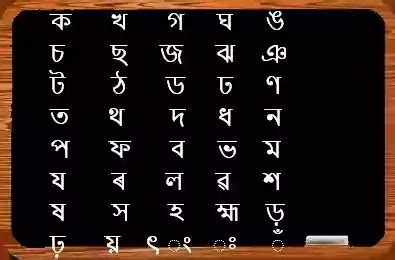 ক খ গ ঘ ঙ
চ ছ জ ঝ ঞ
ট ঠ ড ঢ ণ
ত থ দ ধ ন
প ফ ব ভ ম
য ৰ ল ৱ শ
ষ স হ হ্ম ড়
ঢ় য় ৎ ং ঃ ঁ